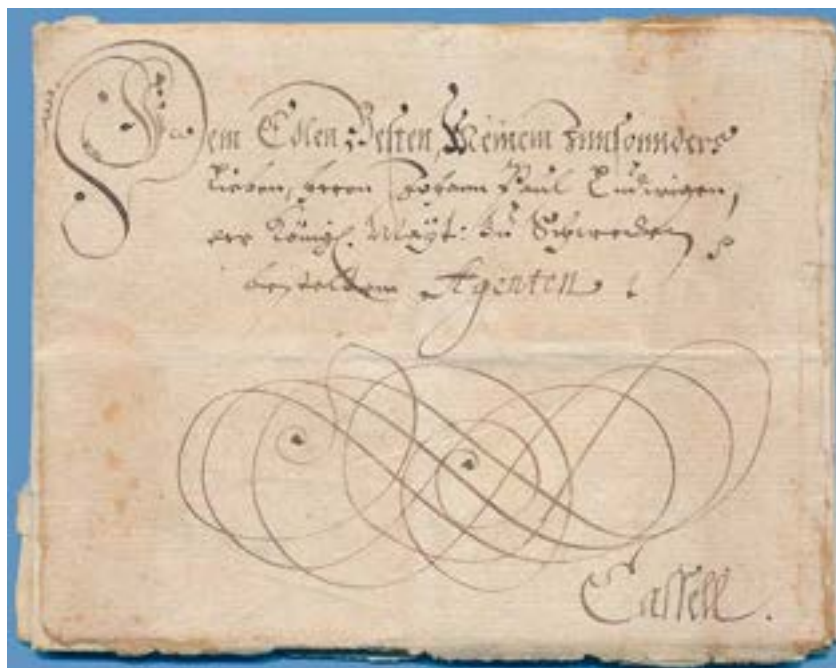 Dem Edlen Vesten, Meinem Innsonnders
Lieben, Herrn Johann Paul Ludwigen,
der Königl. Mayt: zu Schweden
bestelltem Agenten
Cassell.